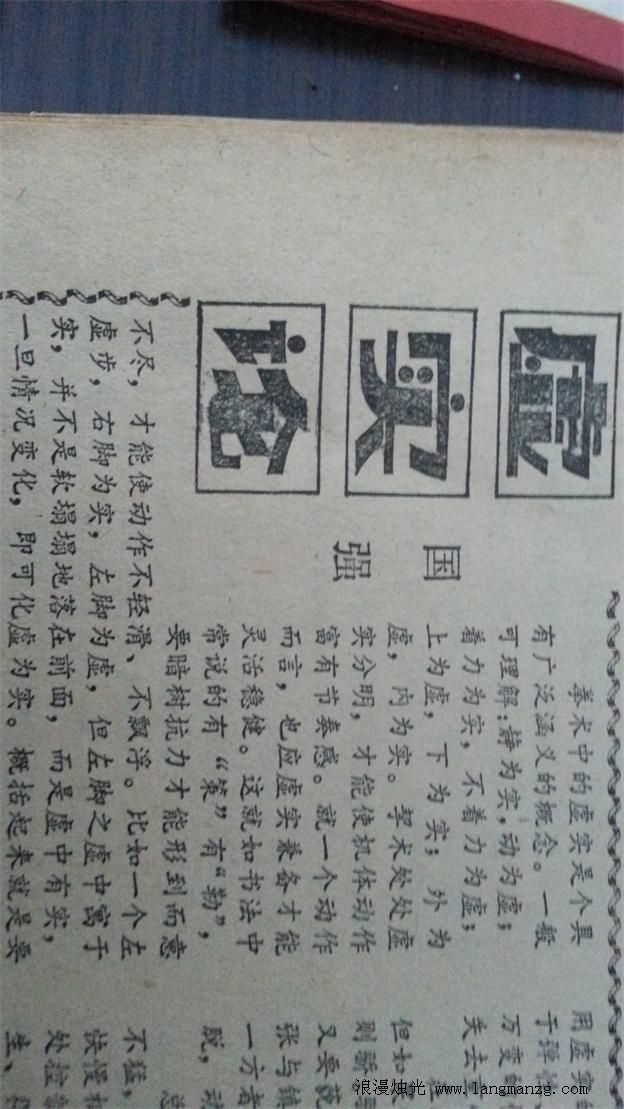 虚实论
国强
拳术中的虚实是个具
有广泛涵义的概念。一般
可理解:静为实,动为虚;
着力为实,不着力为虚;
上为虚,下为实;外为
虚,内为实。拳术处处虚
实分明,才能使机体动作
富有节奏感。就一个动作
而言,也应虚实兼备才能
灵活稳健。这就如书法中
常说的有“策”有“勒”,
要暗树抗力才能形到而意
不尽,才能使动作不轻滑、不飘浮。比如一个左
虚步,右脚为实,左脚为虚,但左脚之虚中寓于
实,并不是软塌塌地落在前面,而是虚中有实,
一旦情况变化,即可化虚为实。概括起来就是要
用虚实
于弹
万变的
失去
但如
则骄
又要
张与
一方者
脱,动
不猛
快慢
处拉
生、
浪漫烛光 www.langmanzg.com